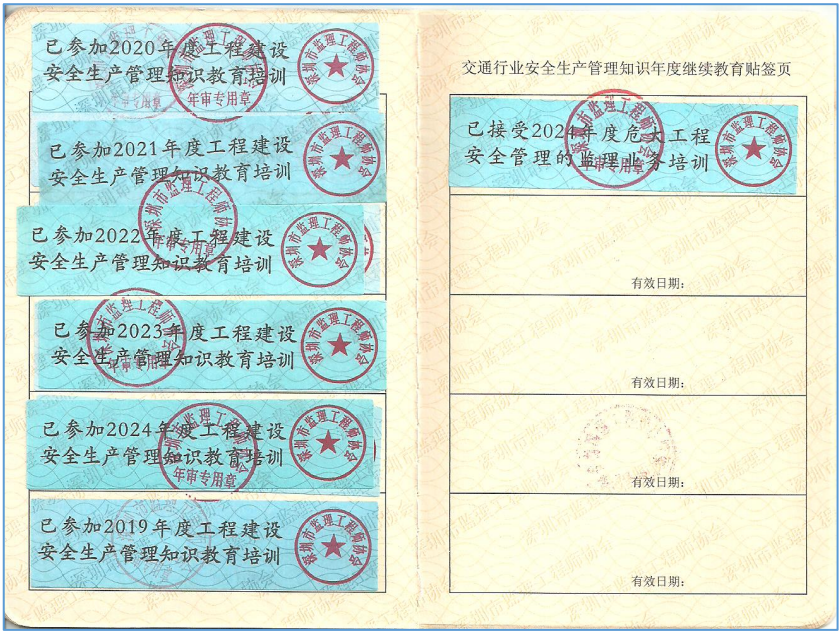 已参加2020年度工程建设
安全生产管理知识教育培训
深圳市监理工程师协会
年审专用章
已参加2021年度工程建设
安全生产管理知识教育培训
深圳市监理工程师协会
已参加2022年度工程建设
安全生产管理知识教育培训
深圳市监理工程师协会
深圳市监理工程师协会
年审专用章
已参加2023年度工程建设
安全生产管理知识教育培训
深圳市监理工程师协会
深圳市监理工程师协会
年审专用章
已参加2024年度工程建设
安全生产管理知识教育培训
深圳市监理工程师协会
深圳市监理工程师协会
年审专用章
已参加2019年度工程建设
安全生产管理知识教育培训
深圳市监理工程师协会
交通行业安全生产管理知识年度继续教育贴签页
已接受2024年度危大工程
安全管理的监理业务培训
深圳市监理工程师协会
深圳市监理工程师协会
年审专用章
有效日期：
有效日期：
有效日期：
有效日期：